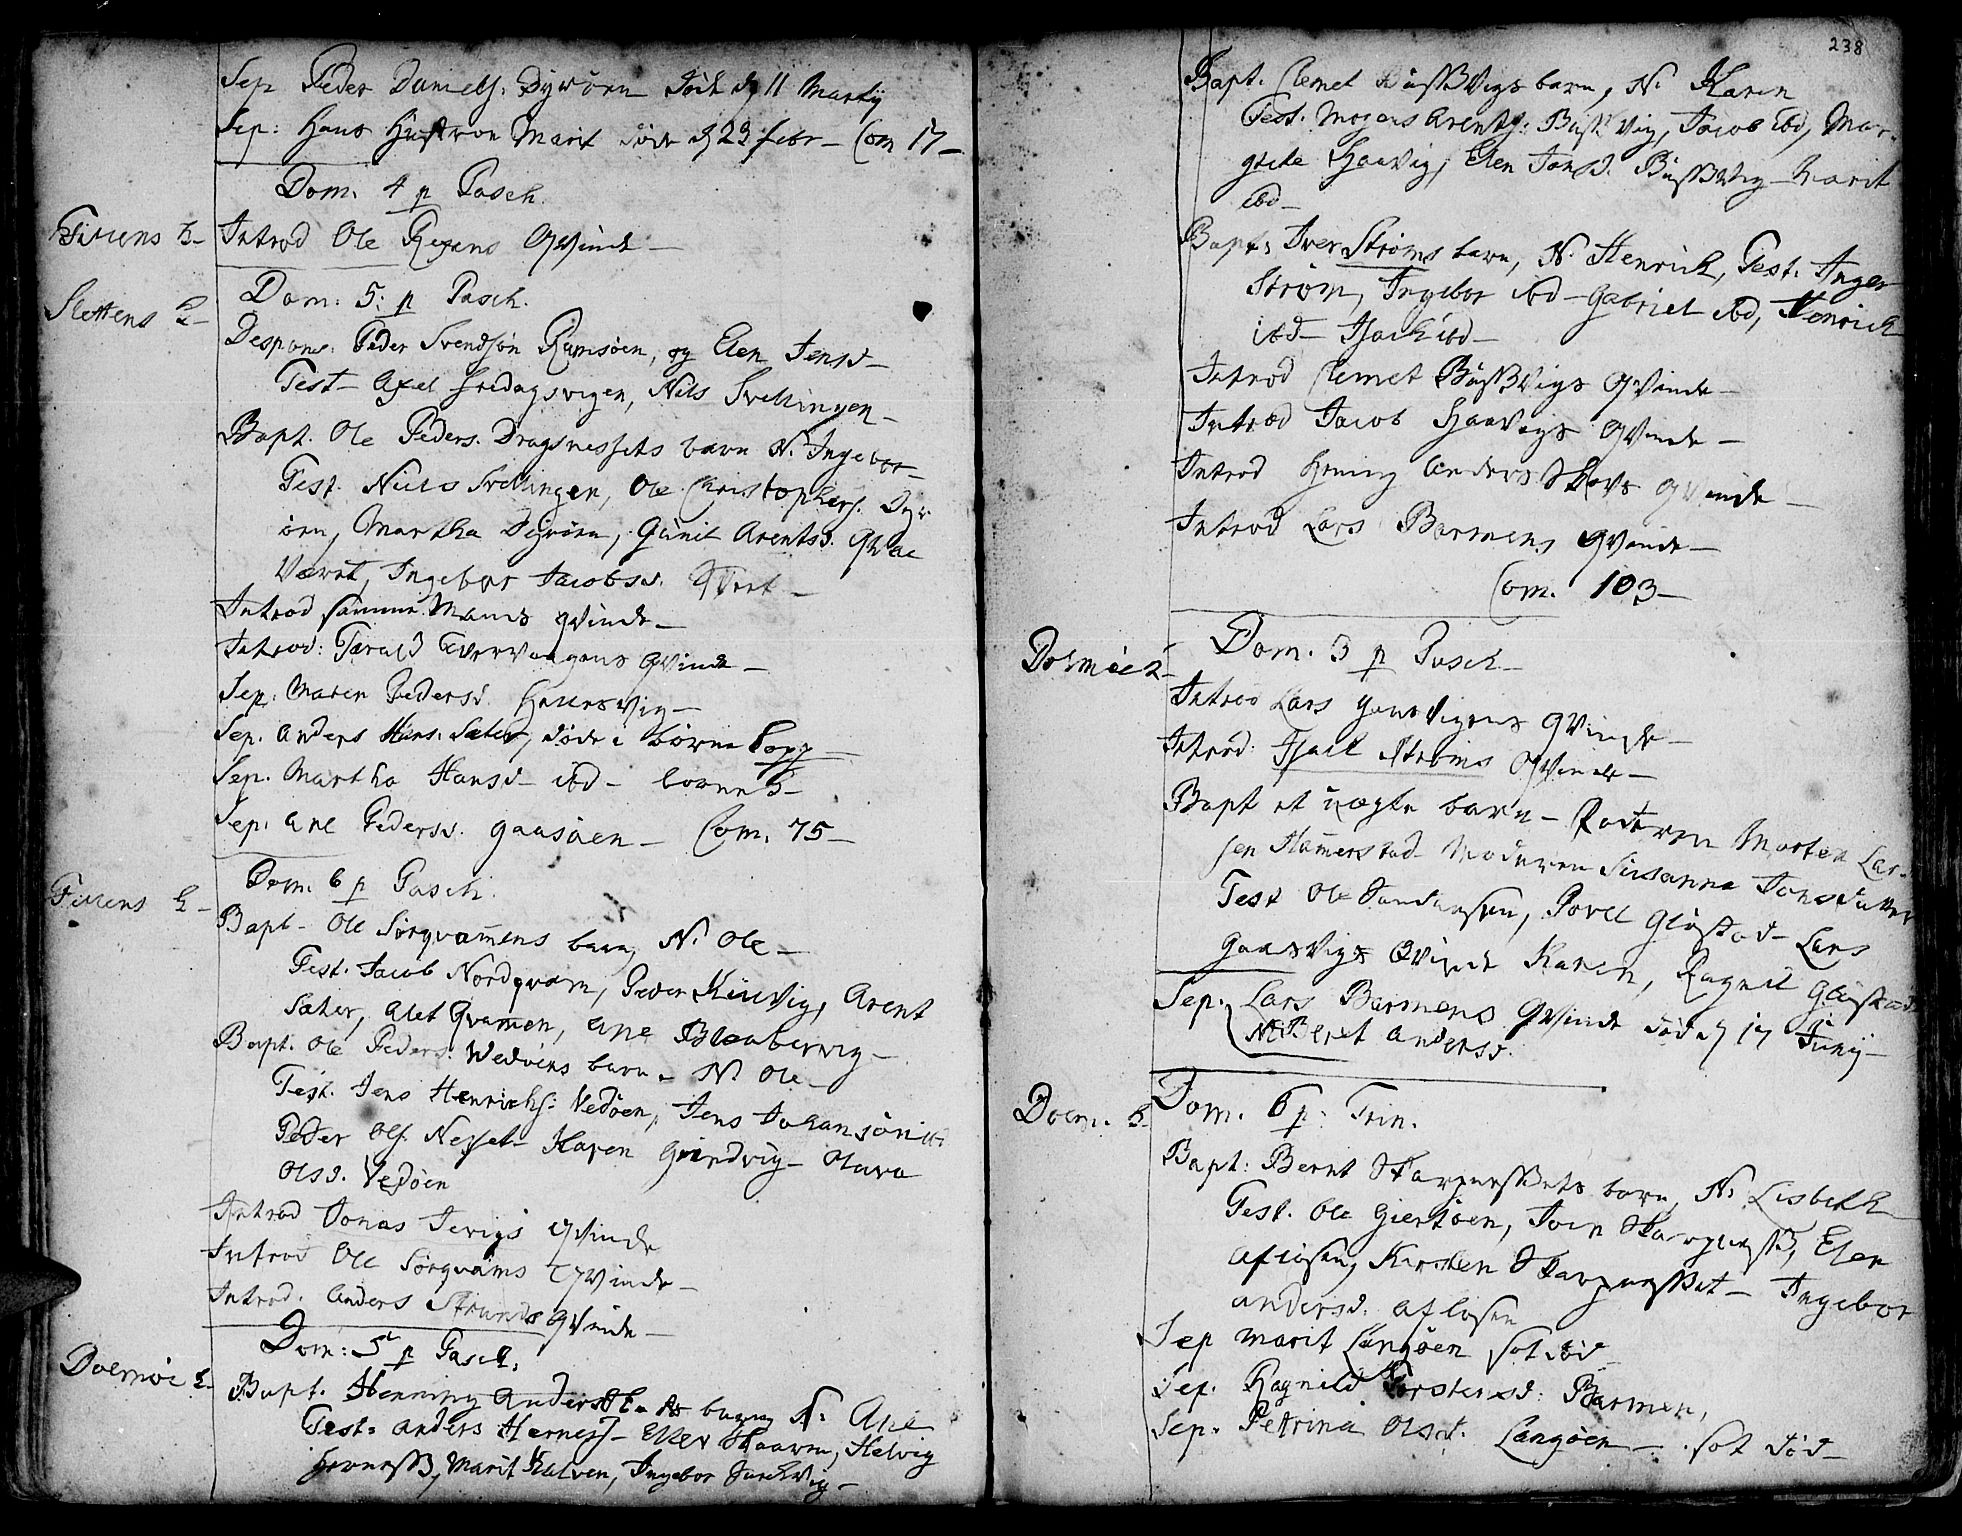 Sep Peder Daniels: Dyrörn död d 11 Martij
Sep: Hans Hustroe Marit döde d 23 febr – Com 17 –
Dom. 4 p Pasch.
Fillens K –
Introd Ole Rexens Qvinde –
Slettens K –
Dom: 5: p Pasch.
Despons: Peder Svendsön Ramsöen, og Elen Jensd –
Test – Axel fredagsvigen, Nils Svellingen –
Bapt. Ole Peders. Dragsnessets barn N. Ingebor –
Test. Niels Svellingen, Ole Christophers. Dyr-
örn, Martha Dyrörn, Gunil Arentsd.
Været, Ingebor Jacobsd.
Introd samme Mands qvinde –
Introd: Tarald Evervaagens Qvinde –
Sep: Maren Pedersd. –
Sep. Anders Hans. Sæter, döde i börne Kopp –
Sep. Martha Hansd – ibd – börne K –
Sep. Ane Pedersd. Gaasöen – Com. 75 –
Fillens K –
Dom. 6 p Pasch.
Bapt – Ole Sörqvamens barn, N. Ole –
Test. Jacob Nordqvam, Peder Kiilvig, Arent
Sæter, Alet Qvamen, Ane Blaabervig –
Bapt. Ole Peders. Wedöens barn – N. Ole –
Test. Jens Henrichs: Vedöen, Jens Johansön ibd
Peder Ols. Nesset – Karen Grindvig – Olava
Olsd. Vedöen
Introd Jonas Tevigs qvinde
Introd Ole Sörqvams Qvinde –
Introd. Anders Strands Qvinde –
Dolmöe K –
Dom: 5 p Pasch.
Bapt. Henning Anders barn N. Ane
Test: Anders Herness – Ellev Skaaren, Helvig
Herness, Marit Kalven, Ingebor –
238
Bapt. Clemet Bussvigs barn, N. Karen
Test. Mogens Arents: Bussvig, Jacob ibd, Mar-
grete Haavig, Elen Jonsd. Bussvig – Marit
ibd –
Bapt: Iver Ströms barn, N. Henrich, Test. Inger
Ström, Ingebor ibd – Gabriel ibd, Henrich
ibd – Isach ibd –
Introd Clemet Bussvigs Qvinde –
Introd Jacob Haavigs Qvinde –
Introd Hening Anders Qvinde –
Introd Lars Barmens Qvinde –
Com. 103 –
Dolmöe K –
Dom. 3 p Pasch –
Introd Lars Gaasvigens Qvinde –
Introd. Isach Ströms Qvinde –
Bapt et uægte barn – Faderen Morten Lar-
sen Hamerstad – Moderen Susanna Jonsdatter
Test Ole Povel Glöstad – Lars
Gaasvigs Qvinde Karen, Ragnil Glöstad
Sep. Lars Barmens Qvinde död d 17 Junij –
N. Beret Andersd.
Dolm. K –
Dom. 6 p: Trin.
Bapt: Bernt barn, N. Lisbeth
Test. Ole Giertöen, Elen
Aflösen, Kirsten – Ingebor
Andersd. Aflösen
Sep Marit Langöen sot död –
Sep. Ragnild Torstensd: Barmen,
Sep. Petrina Olsd. Langöen – sot död –